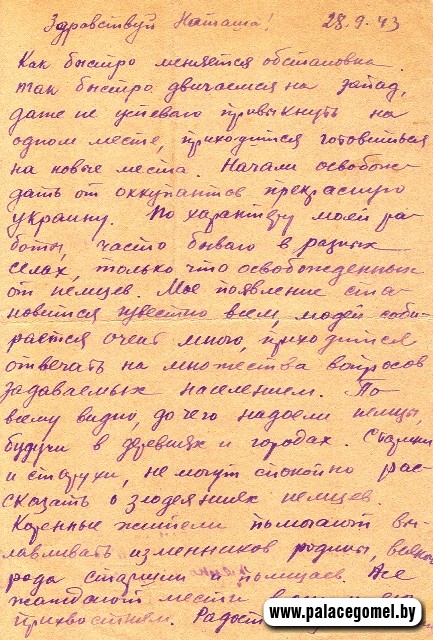 Здравствуй Наташа! 28.9.43
Как быстро меняется обстановка.
Так быстро двигаемся на запад,
даже не успеваю привыкнуть на
одном месте, приходится готовиться
на новые места. Начали освобож-
дать от оккупантов прекрасную
украину. По характеру моей ра-
боты, часто бываю в разных
селах, только что освобожденных
от немцев. Мое появление ста-
новится известно всем, людей соби-
рается очень много, приходится
отвечать на множества вопросов
задаваемых населением. По
всему видно, до чего надоели немцы,
будучи в деревнях и городах. Старики
и старухи, не могут спокойно рас-
сказать о злодеяниях немцев.
Коренные жители помогают вы-
лавливать изменников родины, всякого
рода старшин и полицаев. Все
жаждают мести
прихвостням.
www.palacegomel.by